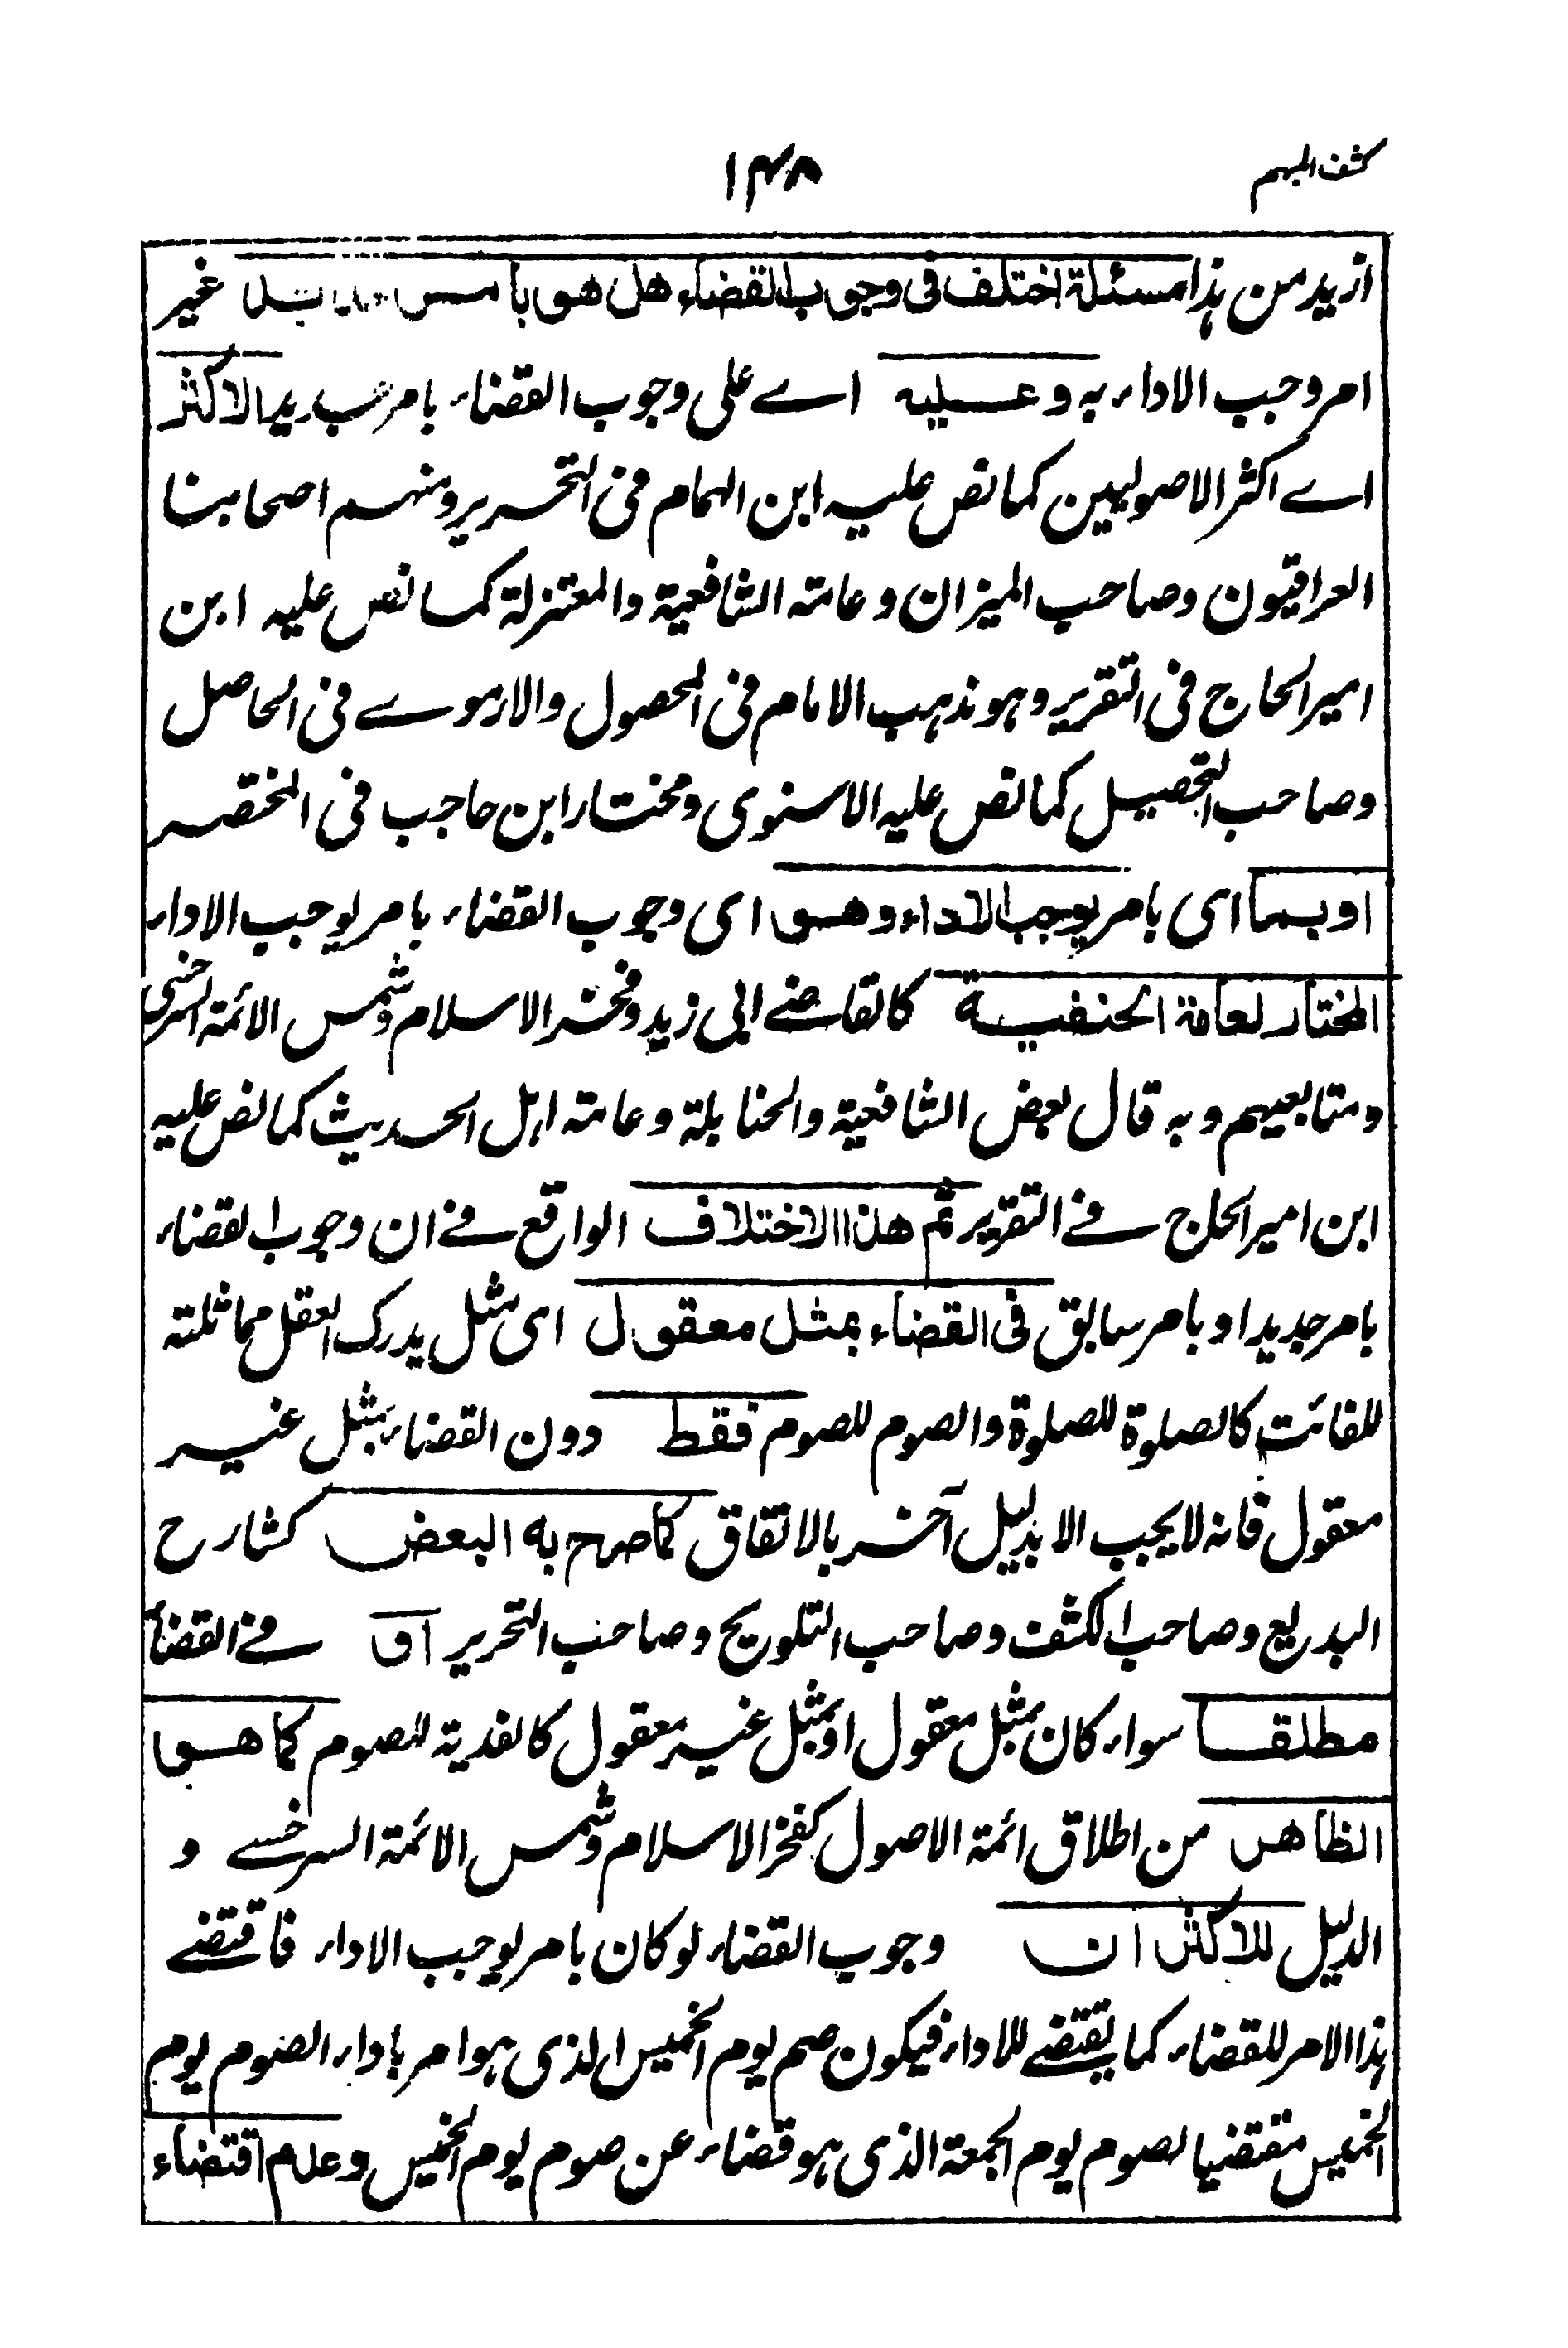 كشف المبهم
١٤٨
ازيد من هذا مسئلة اختلف فى وجوب القضاء هل هو بامر غير
امر وجب الاداء به وعليه اے على وجوب القضاء بامر جديد الاكثر
اے اكثر الاصوليين كما نص عليه ابن الهمام فى التحرير ومنهم اصحابنا
العراقيون وصاحب الميزان وعامة الشافعية والمعتزلة كما نص عليه ابن
امير الحاج فى التقرير وهو مذهب الامام فى المحصول والارموے فى الحاصل
وصاحب التحصيل كما نص عليه الاسنوى ومختار ابن حاجب فى المختصر
او بما اى بامر يوجب الاداء وهو اى وجوب القضاء بامر يوجب الاداء
المختار لعامة الحنفية كالقاضے ابى زيد وفخر الاسلام وشمس الائمة السرخسى
ومتابعيهم وبه قال بعض الشافعية والحنابلة وعامة اهل الحديث كما نص عليه
ابن امير الحاج فے التقرير ثم هذا الاختلاف الواقع فے ان وجوب القضاء
بامر جديد او بامر سابق فى القضاء بمثل معقول اى مثل يدرك العقل مماثلته
للفائت كالصلوة للصلوة والصوم للصوم فقط دون القضاء بمثل غير
معقول فانه لا يجب الا بدليل آخر بالاتفاق كما صرح به البعض كشارح
البديع وصاحب الكشف وصاحب التلويح وصاحب التحرير او فے القضاء
مطلقا سواء كان بمثل معقول او بمثل غير معقول كالفدية للصوم كما هو
الظاهر من اطلاق ائمة الاصول كفخر الاسلام وشمس الائمة السرخسے و
الدليل للاكثر ان وجوب القضاء لو كان بامر يوجب الاداء فاقتضے
هذا الامر للقضاء كما يقتضے للاداء فيكون صم يوم الخميس الذى هو امر باداء الصوم يوم
الخميس مقتضيا لصوم يوم الجمعة الذى هو قضاء عن صوم يوم الخميس وعدم اقتضاء